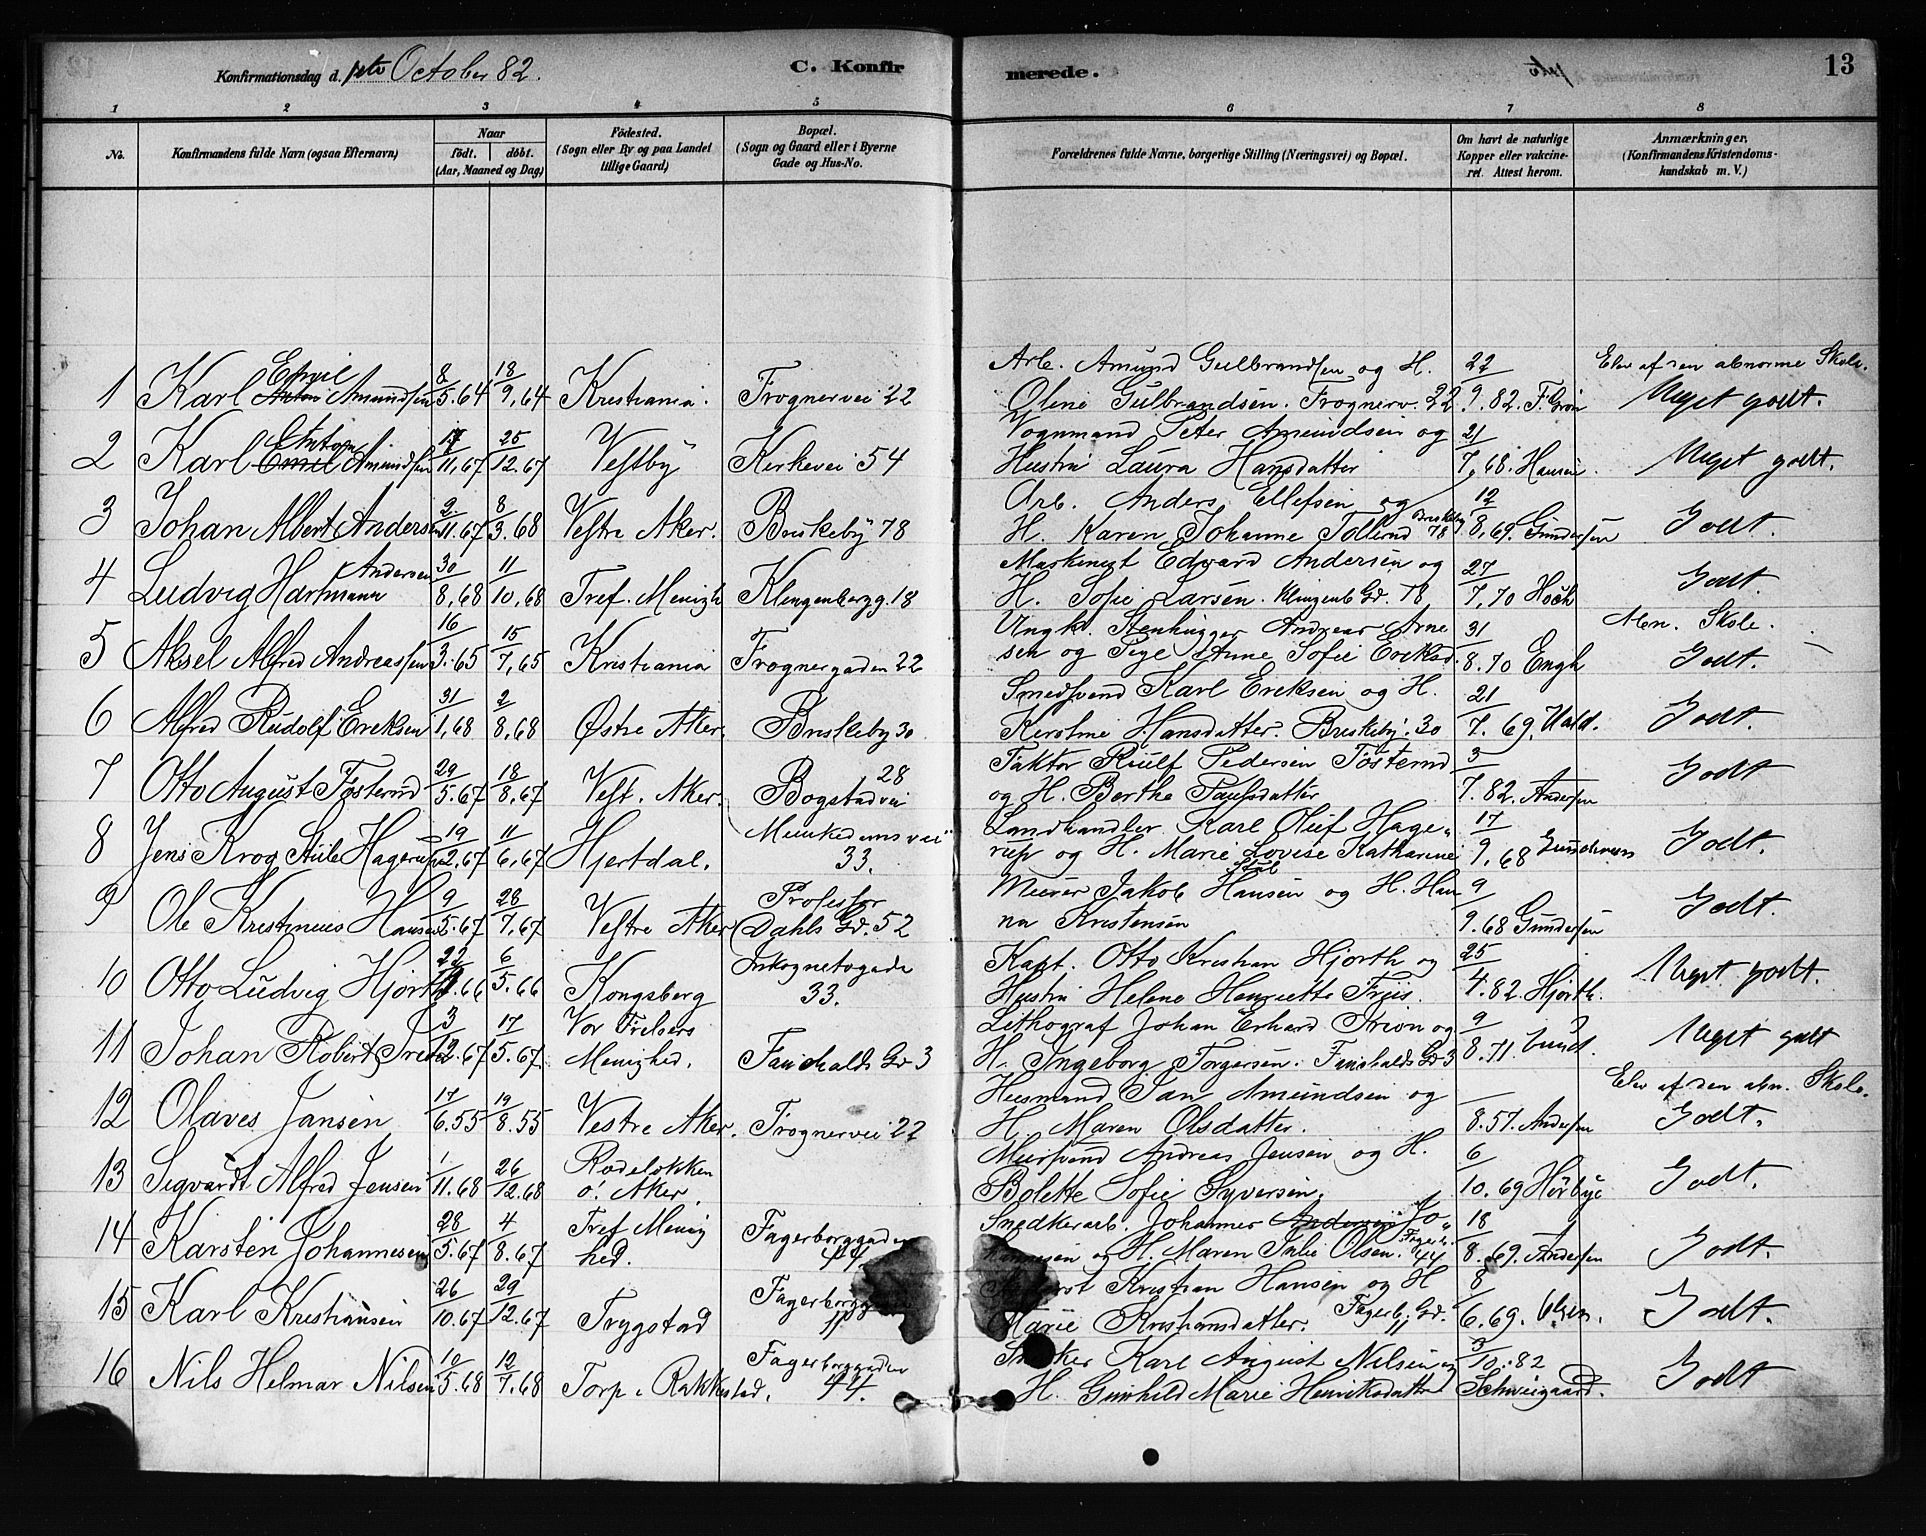 Konfirmationsdag d. 1ste October 82.
C. Konfirmerede.
13
1 2 3 4 5 6 7 8
No.
Konfirmandens fulde Navn (ogsaa Efternavn)
Naar
födt. döbt.
(Aar, Maaned og Dag)
Födested.
(Sogn eller By og paa Landet
tillige Gaard)
Bopæl.
(Sogn og Gaard eller i Byerne
Gade og Hus-No.
Forældrenes fulde Navne, borgerlige Stilling (Næringsvei) og Bopæl.
Om havt de naturlige
Kopper eller vakcine-
ret. Attest herom.
Anmærkninger.
(Konfirmandens Kristendoms-
kundskab m. V.)
1 Karl Emil Amundsen 8/5.64 18/9.64 Kristiania. Frognervei 22 Arb. Amund Gulbrandsen og H.
Olene Gulbrandsen. Frognerv. 22 22/9.82. F. Grøn Elev af den abnorme Skole. Meget godt.
2 Karl Anton Amundsen 17/11.67 25/12.67 Vestby Kirkevei 54 Vognmand Peter Amundsen og
Hustru Laura Hansdatter 21/7.68. Hansen. Meget godt.
3 Johan Albert Andersen 2/11.67 8/3.68 Vestre Aker. Briskeby 78 Arb. Anders Ellefsen og
H. Karen Johanne Briskeby 78 12/8.69. Gundersen Godt.
4 Ludvig Hartmann Andersen 30/8.68 11/10.68 Tref. Menigh. Klingenbergg. 18 Maskinist Edvard Andersen og
H. Sofie Larsen. Klingenb. Gd. 78 27/7.70 Godt.
5 Aksel Alfred Andreassen 16/3.65 15/7.65 Kristiania Frognergaden 22 Ungk. Stenhugger Andreas Arne
sen og Pige Anne Sofie Eriksd. 31/8.70 Engh Alm. Skole. Godt.
6 Alfred Rudolf Eriksen 31/1.68 2/8.68 Østre Aker. Briskeby 30 Smedsvend Karl Eriksen og H.
Hansdatter. Briskeby. 30 21/7.69. Godt.
7 Otto August Fosterud 29/5.67 18/8.67 Vest. Aker. Bogstadvei 28 Faktor Pedersen Fosterud
og H. Berthe Paulsdatter 3/7.82. Andersen Godt
8 Jens Krog Stub Hagerup 19/2.67 11/6.67 Hjertdal. Munkedamsvei 33. Landhandler Karl Oluf Hage-
rup og H. Marie Lovise Katharine Stub 17/9.68 Gundersen Godt.
9 Ole Kristinius Hansen 9/5.67 28/7.67 Vestre Aker Professor Dahls Gd. 52 Murer Jakob Hansen og H. Han
na Kristensen 9/9.68 Gundersen Godt.
10 Otto Ludvig Hjorth 22/.66 6/5.66 Kongsberg Inkognetogade 33. Kapt. Otto Kristian Hjorth og
Hustru Helene Henriette Friis. 25/4.82. Hjorth. Meget godt.
11 Johan Robert 3/12.67 17/5.67. Vor Frelsers Menighed. Fauchalds Gd 3 Lithograf Johan Erhard og
H. Ingeborg Torgersen. Fauchalds Gd 3 9/8.71 Lund. Meget godt
12 Olaves Jansen 17/6.55 19/8.55 Vestre Aker. Frognervei 22 Husmand Jan Amundsen og
H. Maren Olsdatter. 8.57. Andersen Elev af den abn. Skole. Godt.
13 Sigvardt Alfred Jensen 1/11.68 26/12.68 Rodeløkken ö. Aker. Mursvend Andreas Jensen og H.
Bolette Sofie Syversen. 6/10.69 Hörbye Godt.
14 Karsten Johannesen 28/5.67 4/8.67 Tref. Menig hed. Fagerborggaden 44. Snedkerarb. Johannes Andersen Jo-
hannesen og H. Maren Julie Olsen. Fagerb. 44 18/8.69. Andersen Godt.
15 Karl Kristiansen 26/10.67 29/12.67 Trygstad Fagerborggaden 11 Kristian Hansen og H
Marie Kristiansdatter. Fagerb. Gd. 11 8/6.69. Olsen. Godt.
16 Nils Helmar Nilsen 10/5.68 12/7.68 Torp i Rakkestad. Fagerborggaden 44. Karl August Nilsen og
H. Gunhild Marie Henriksdatter 3/10.82 Schweigaard. Godt